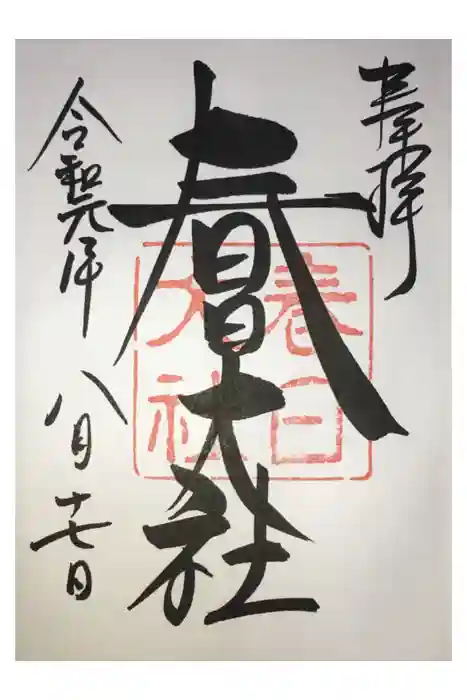 奉拝
春日大社
春日
大社
令和元年
八月十七日